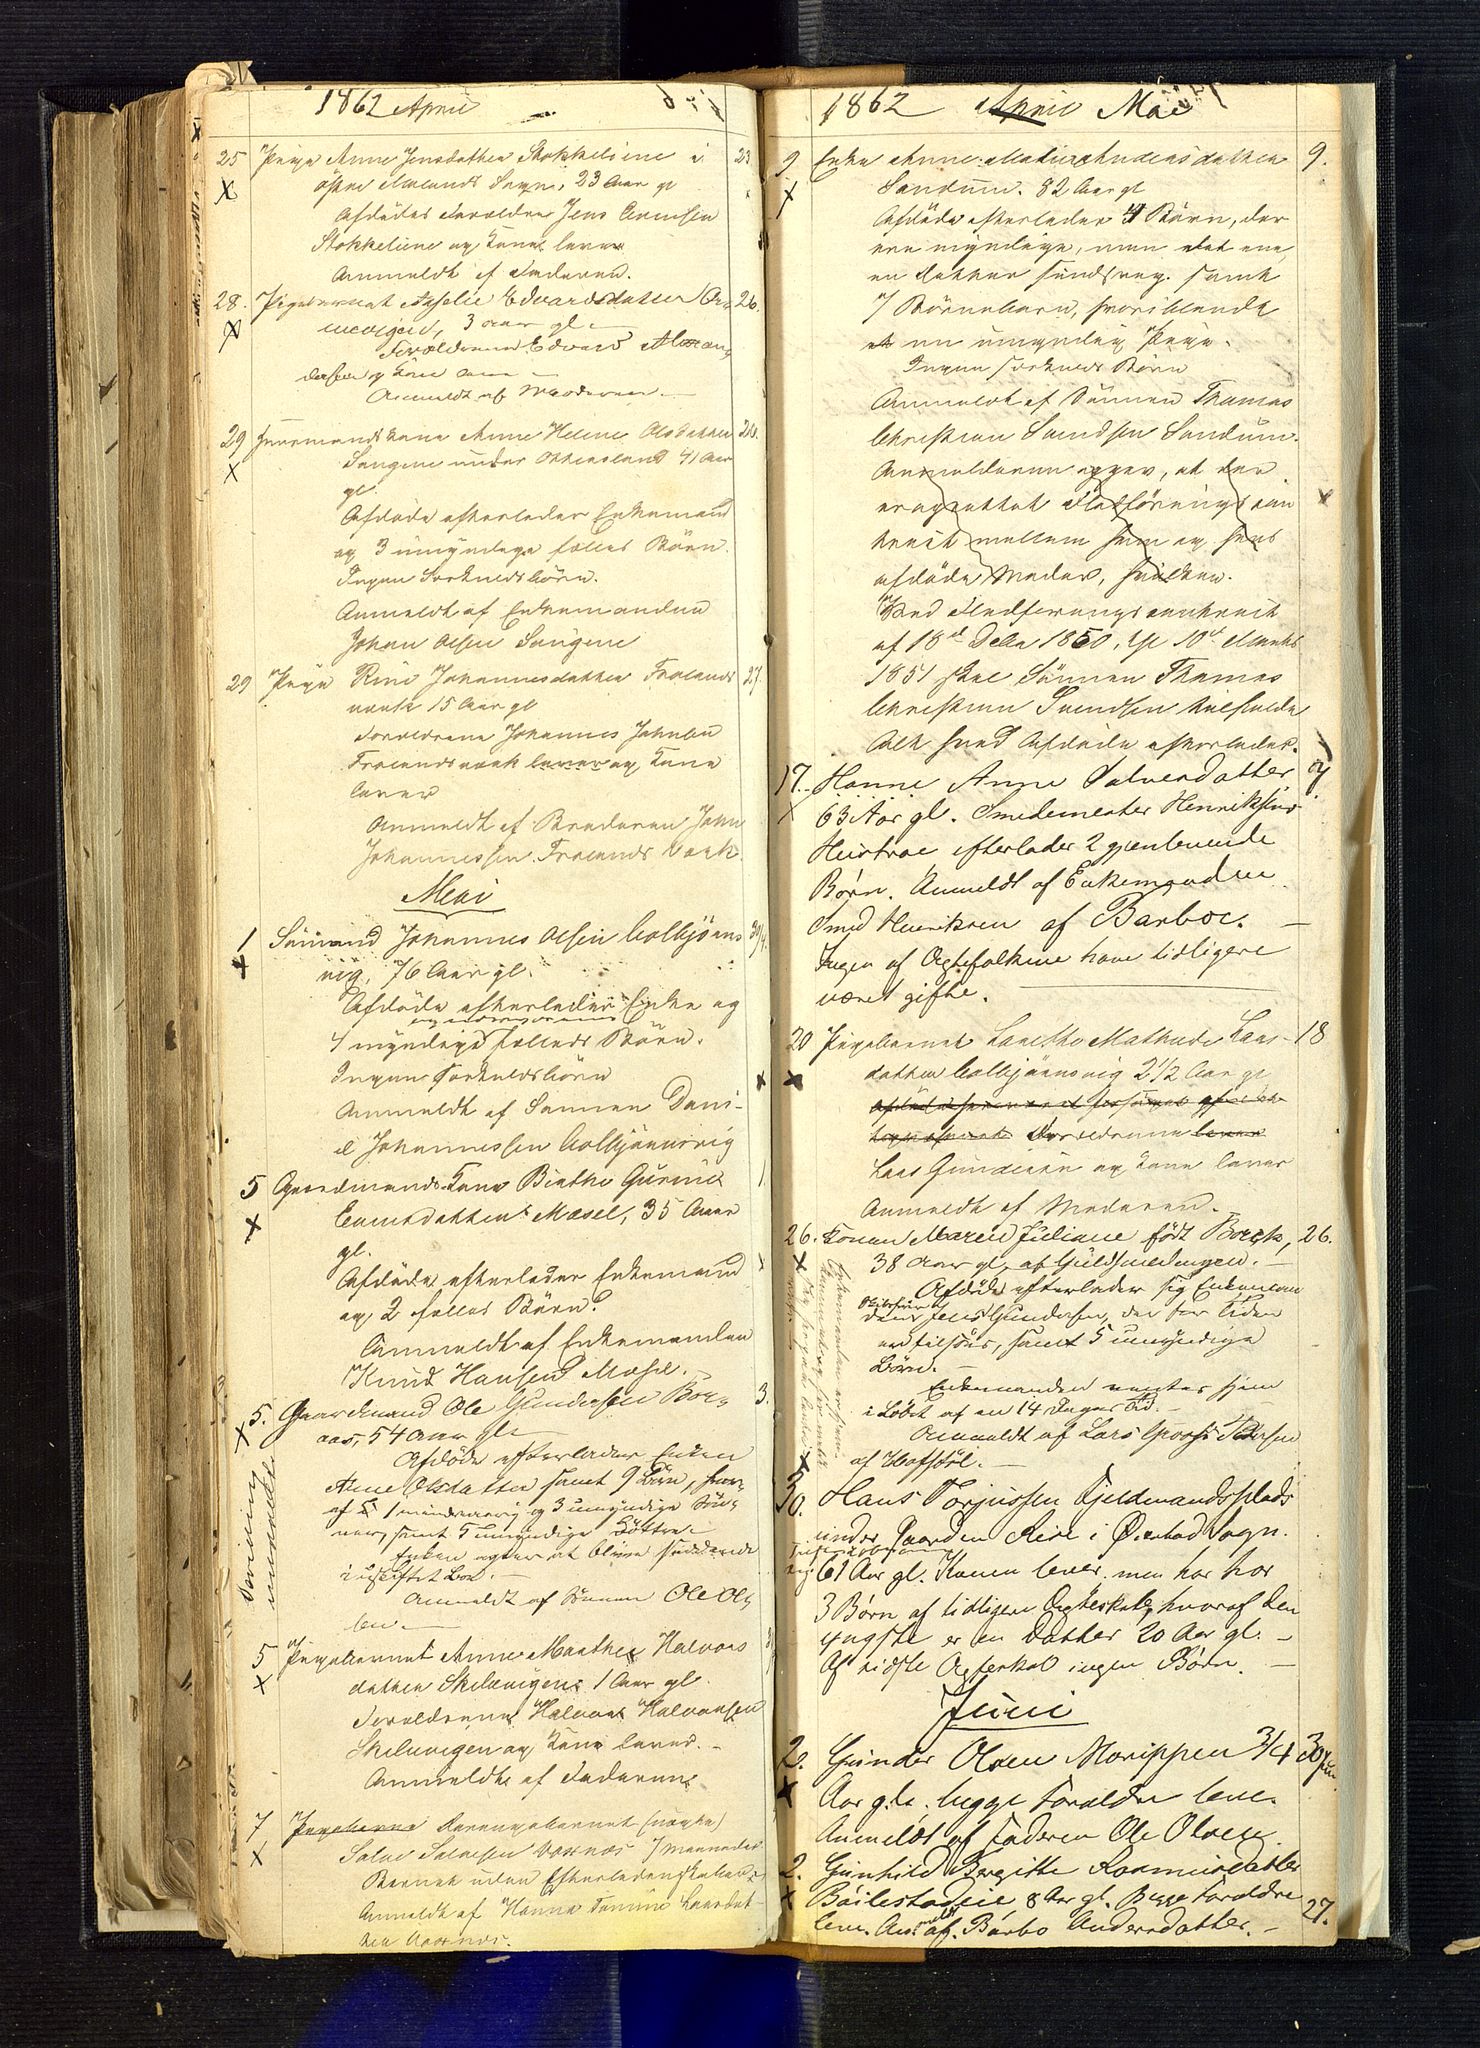 1862 April
25 Pige Anne Jensdatter Stokkeliene i 23
østre Molands Sogn, 23 Aar gl
Afdødes Forældre Jens Evensen
Stokkeliene og Kone lever
Anmeldt af Faderen.
28. Pigebarnet Edvardsdatter 26.
3 Aar gl
Forældrene Edvard
og Kone
Anmeldt af Moderen.
29 Kone Anne Helene Olsdatter
Sangene under 41 Aar
gl.
Afdøde efterlader Enkemand
og 3 umyndige fælles Børn.
Ingen Særkuldsbørn.
Anmeldt af Enkemanden
Johan Olsen Sangene
29 Pige Rine Johannesdatter Frolands 27
værk 15 Aar gl
Forældrene Johannes Johnsen
Frolandsværk lever og Kone
lever
Anmeldt af Broderen John
Johannessen Frolands Værk.
Mai
1 Sømand Johannes Olsen Colbjørns 30/4
vig, 76 Aar gl.
Afdøde efterlader Enke og
4 myndige fælleds Børn.
Ingen Særkuldsbørn
Anmeldt af Sønnen Dani-
el Johannessen Colbjørnsvig
5 Gaardmands Kone Birthe Gurine 1
Evensdatter Mæsel, 35 Aar
gl.
Afdøde efterlader Enkemand
og 2 fælles Børn.
Anmeldt af Enkemanden
Knud Hansen Mæsel.
5. Gaardmand Ole Gundersen Bor- 3.
aas, 54 Aar gl
Afdøde efterlader Enken
Anne Olsdatter samt 9 Børn, hvor-
af 1 mindreaarig og 3 umyndige Søn-
ner, samt 5 umyndige Døttre.
Enken agter at blive siddende
i uskiftet Bo.
Anmeldt af Sønnen Ole Ol-
sen
5 Pigebarnet Anne Marthe Halvors
datter Skilevigen 1 Aar gl.
Forældrene Halvor Halvorsen
Skilevigen og Kone lever.
Anmeldt af Faderen
7 Pigebarn Drengebarnet (uægte)
Salve Salvesen 7 Maaneder
Barnet uden Efterladenskaber
Anmeldt af Hanna Larsdat-
ter
1862 April Mai
9 Enke Anne Andersdatter 9.
Sandum. 82 Aar gl
Afdøde efterlader 4 Børn, der
ere myndige, men det ene,
en Datter sindssvag. samt
7 Børnebørn, hvoriblandt
en umyndig Pige.
Ingen særkuds Børn
Anmeldt af Sønnen Thomas
Christian Svendsen Sandum.
Anmelderen opgav, at der
er oprettet Fledføringscon
tract mellem ham og hans
afdøde Moder, hvilken.
Ved Fledføringscontract
af 18de Decbr 1850, 10de Marts
1851 skal Sønnen Thomas
Christian Svendsen tilfalde
Alt hvad Afdøde efterlader.
17. Hanne Anne Salvesdatter 9
63 Aar gl. Smedemester Henriksens
Hustroe efterlader 2 gjenlevende
Børn. Anmeldt af Enkemanden
Smed Henriksen af Barboe.
Ingen af Ægtefolkene have tidligere
været gifte.
20 Pigebarnet Mathilde Lars- 18
datter Colbjørnsvig 2 1/2 Aar gl
Forældrene lever
Lars Gundersen og Kone lever
Anmeldt af Moderen.
26. Konen Maren Juliane født Boeck, 26.
38 Aar gl, af Guldsmedengen.
Afdøde efterlader sig Enkeman
den Jens Gundersen, der for Tiden
er tilsøes, samt 5 umyndige
Børn.
Enkemanden ventes hjem
i Løbet af en 14 Dages Tid.
Anmeldt af Lars Petersen
af
30. Hans Torjussen Fjeldmandsplads
under Gaarden Rise i Øiestad Sogn.
61 Aar gl. Konen lever, men har
3 Børn af tidligere Ægteskab, hvoraf den
yngste er en Datter 20 Aar gl.
Af sidste Ægteskab ingen Børn.
Juni
2. Gunder Olsen Morippen 3/4 30
Aar gl. begge Foraldre leve.
Anmeldt af Faderen Ole Olsen.
2. Gunhild Bergitte Rasmusdatter
8 Aar gl. Begge Foraldre 27.
leve. Anmeldt af Barbo Andersdatter.